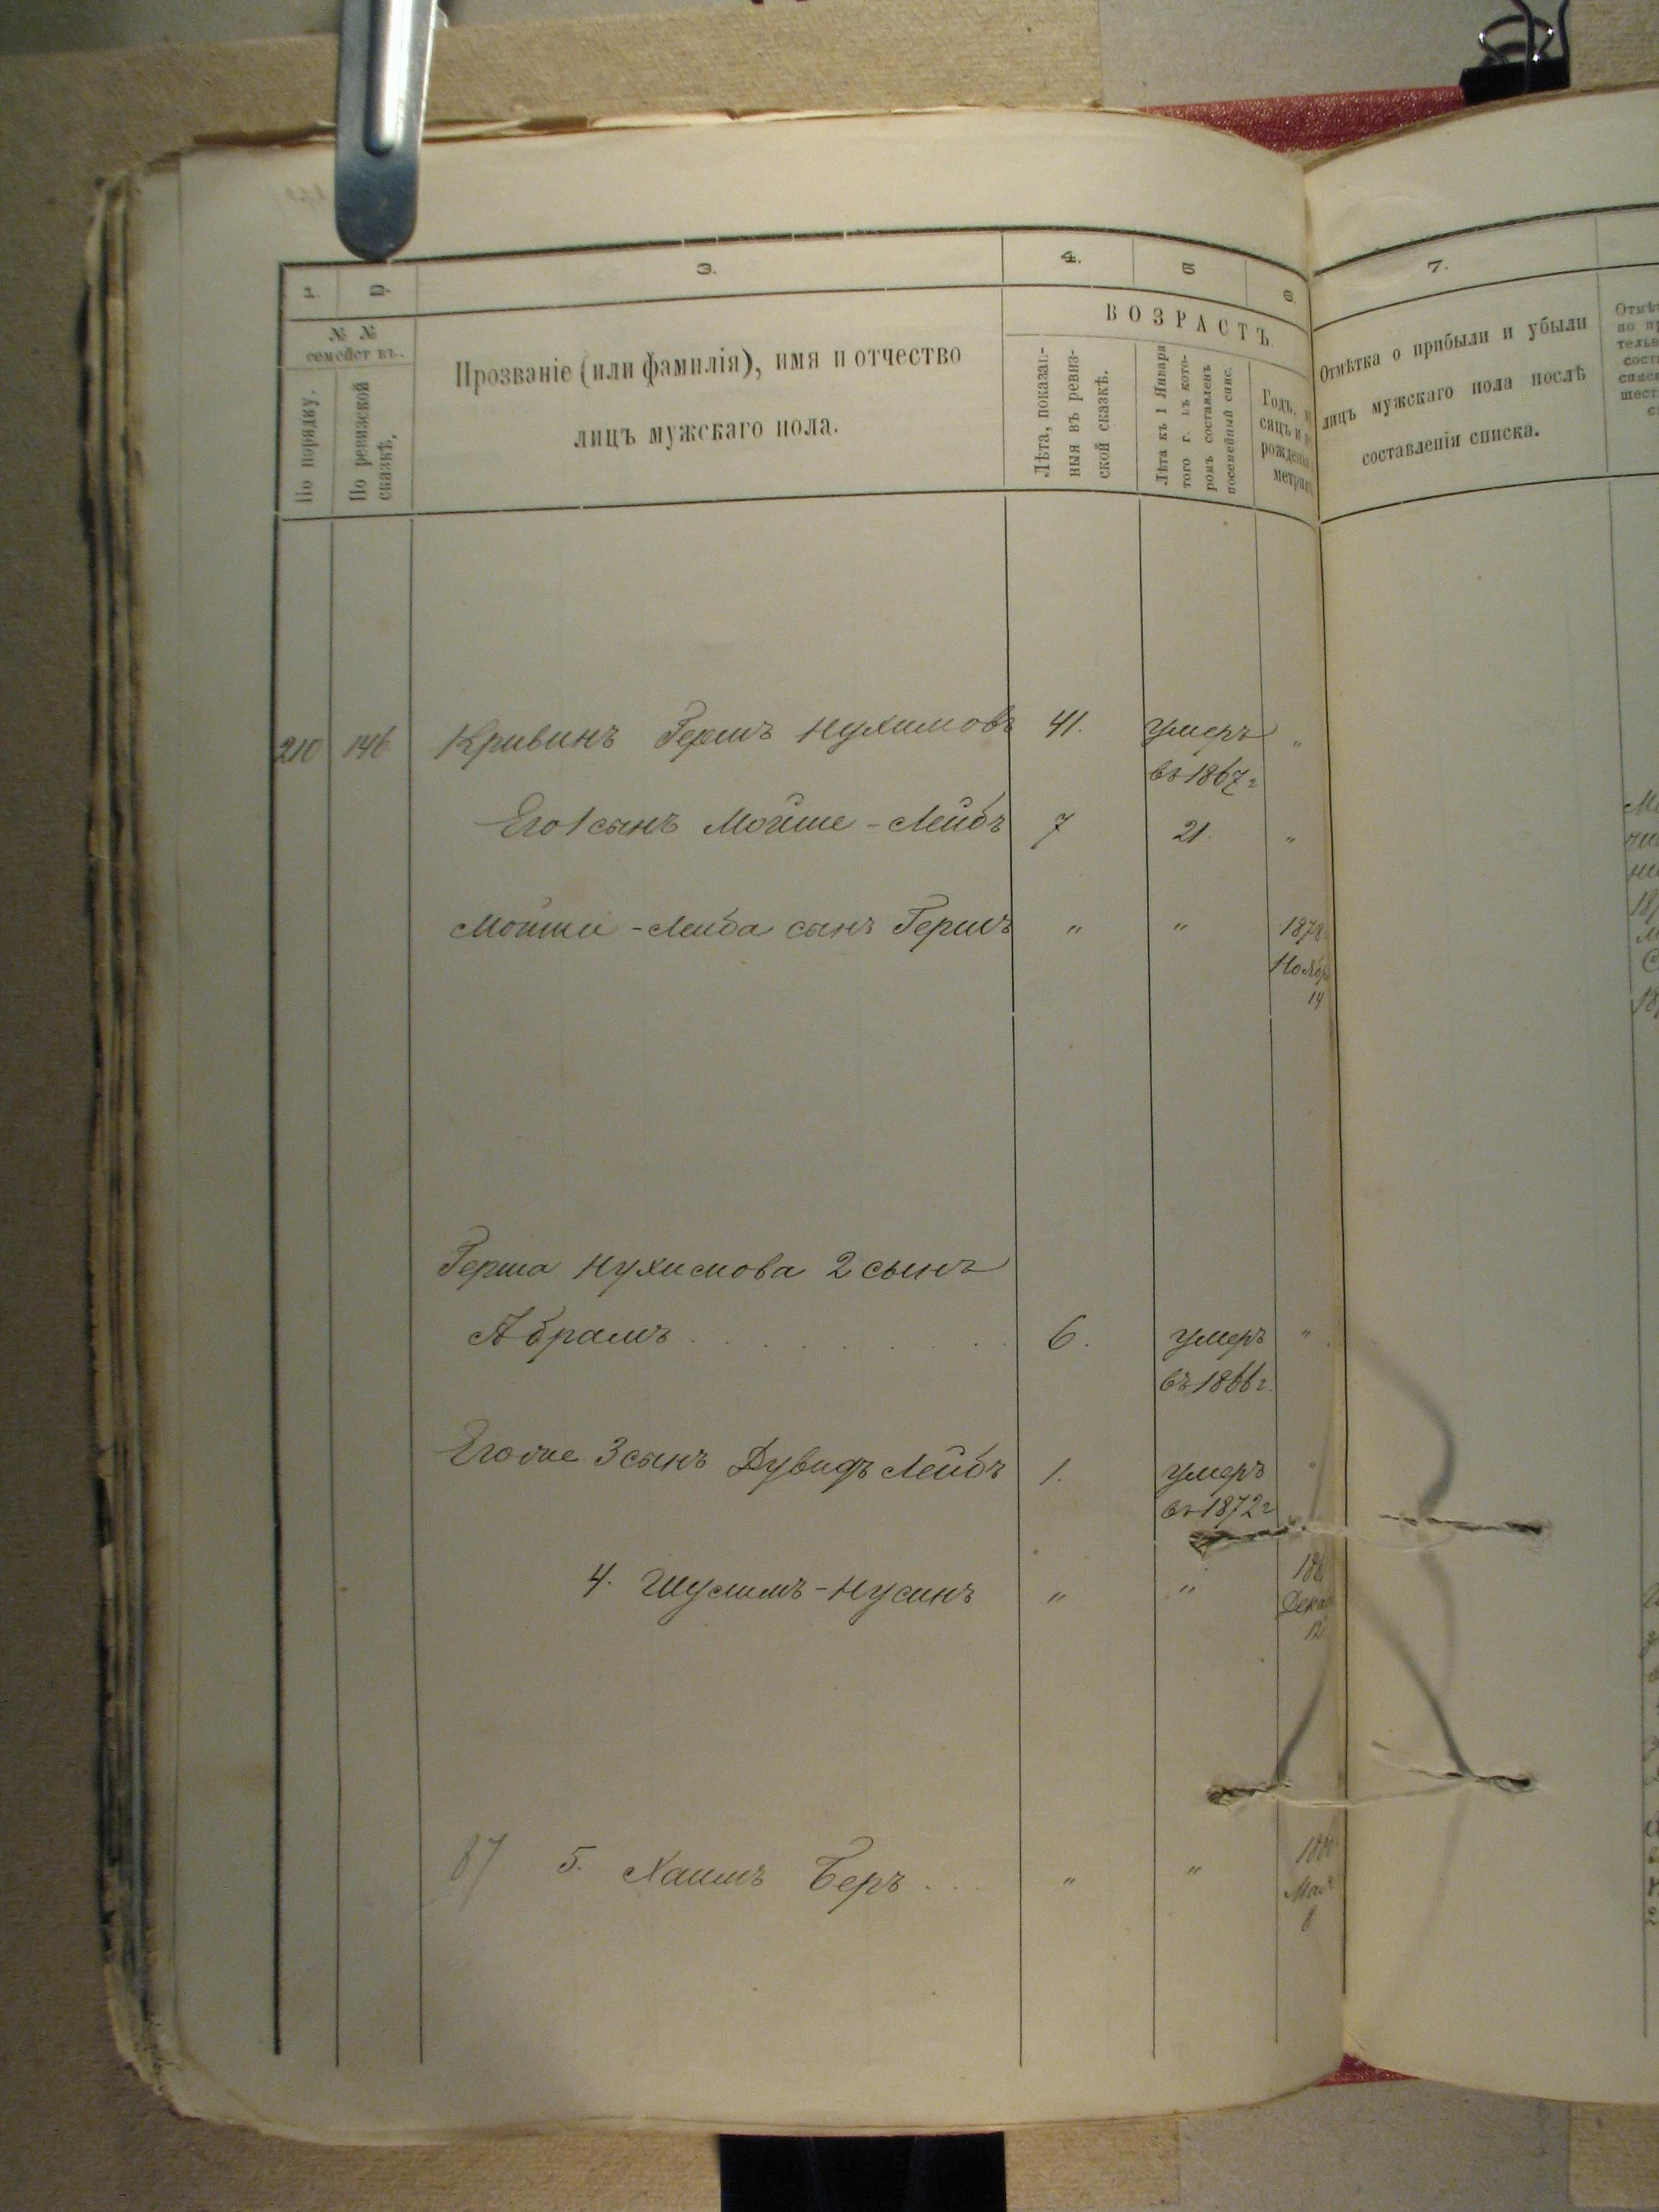 1. 2. 3. 4. 5 6. 7.
№ №
семействъ.
По порядку.
По ревизской сказкѣ.
Прозваніе (или фамилія), имя и отчество
лицъ мужскаго пола.
ВОЗРАСТЪ.
Лѣта, показан-
ныя въ ревиз-
ской сказкѣ.
Лѣта къ 1 Января
того г. въ кото-
ромъ составленъ
посемейный спис.
Годъ,
сяцъ и
рожденія
метрик
Отмѣтка о прибыли и убыли
лицъ мужскаго пола послѣ
составленія списка.
210 146 Кривинъ Гершъ Нухимовъ 41. умеръ "
въ 1867 г
Его 1 сынъ Мойше-Лейбъ 7 21. "
Мойши-Лейба сынъ Гершъ " " 1878
Ноябр
14
Герша Нухимова 2 сынъ
Абрамъ . . . . . . . . 6. умеръ "
въ 1866 г.
Его же 3 сынъ Дувидъ Лейбъ 1. умеръ "
въ 1872 г
4. Шулимъ-Нусинъ " " 186
Дека
12
87 5. Хаимъ Беръ . . . " " 186
Мая
8